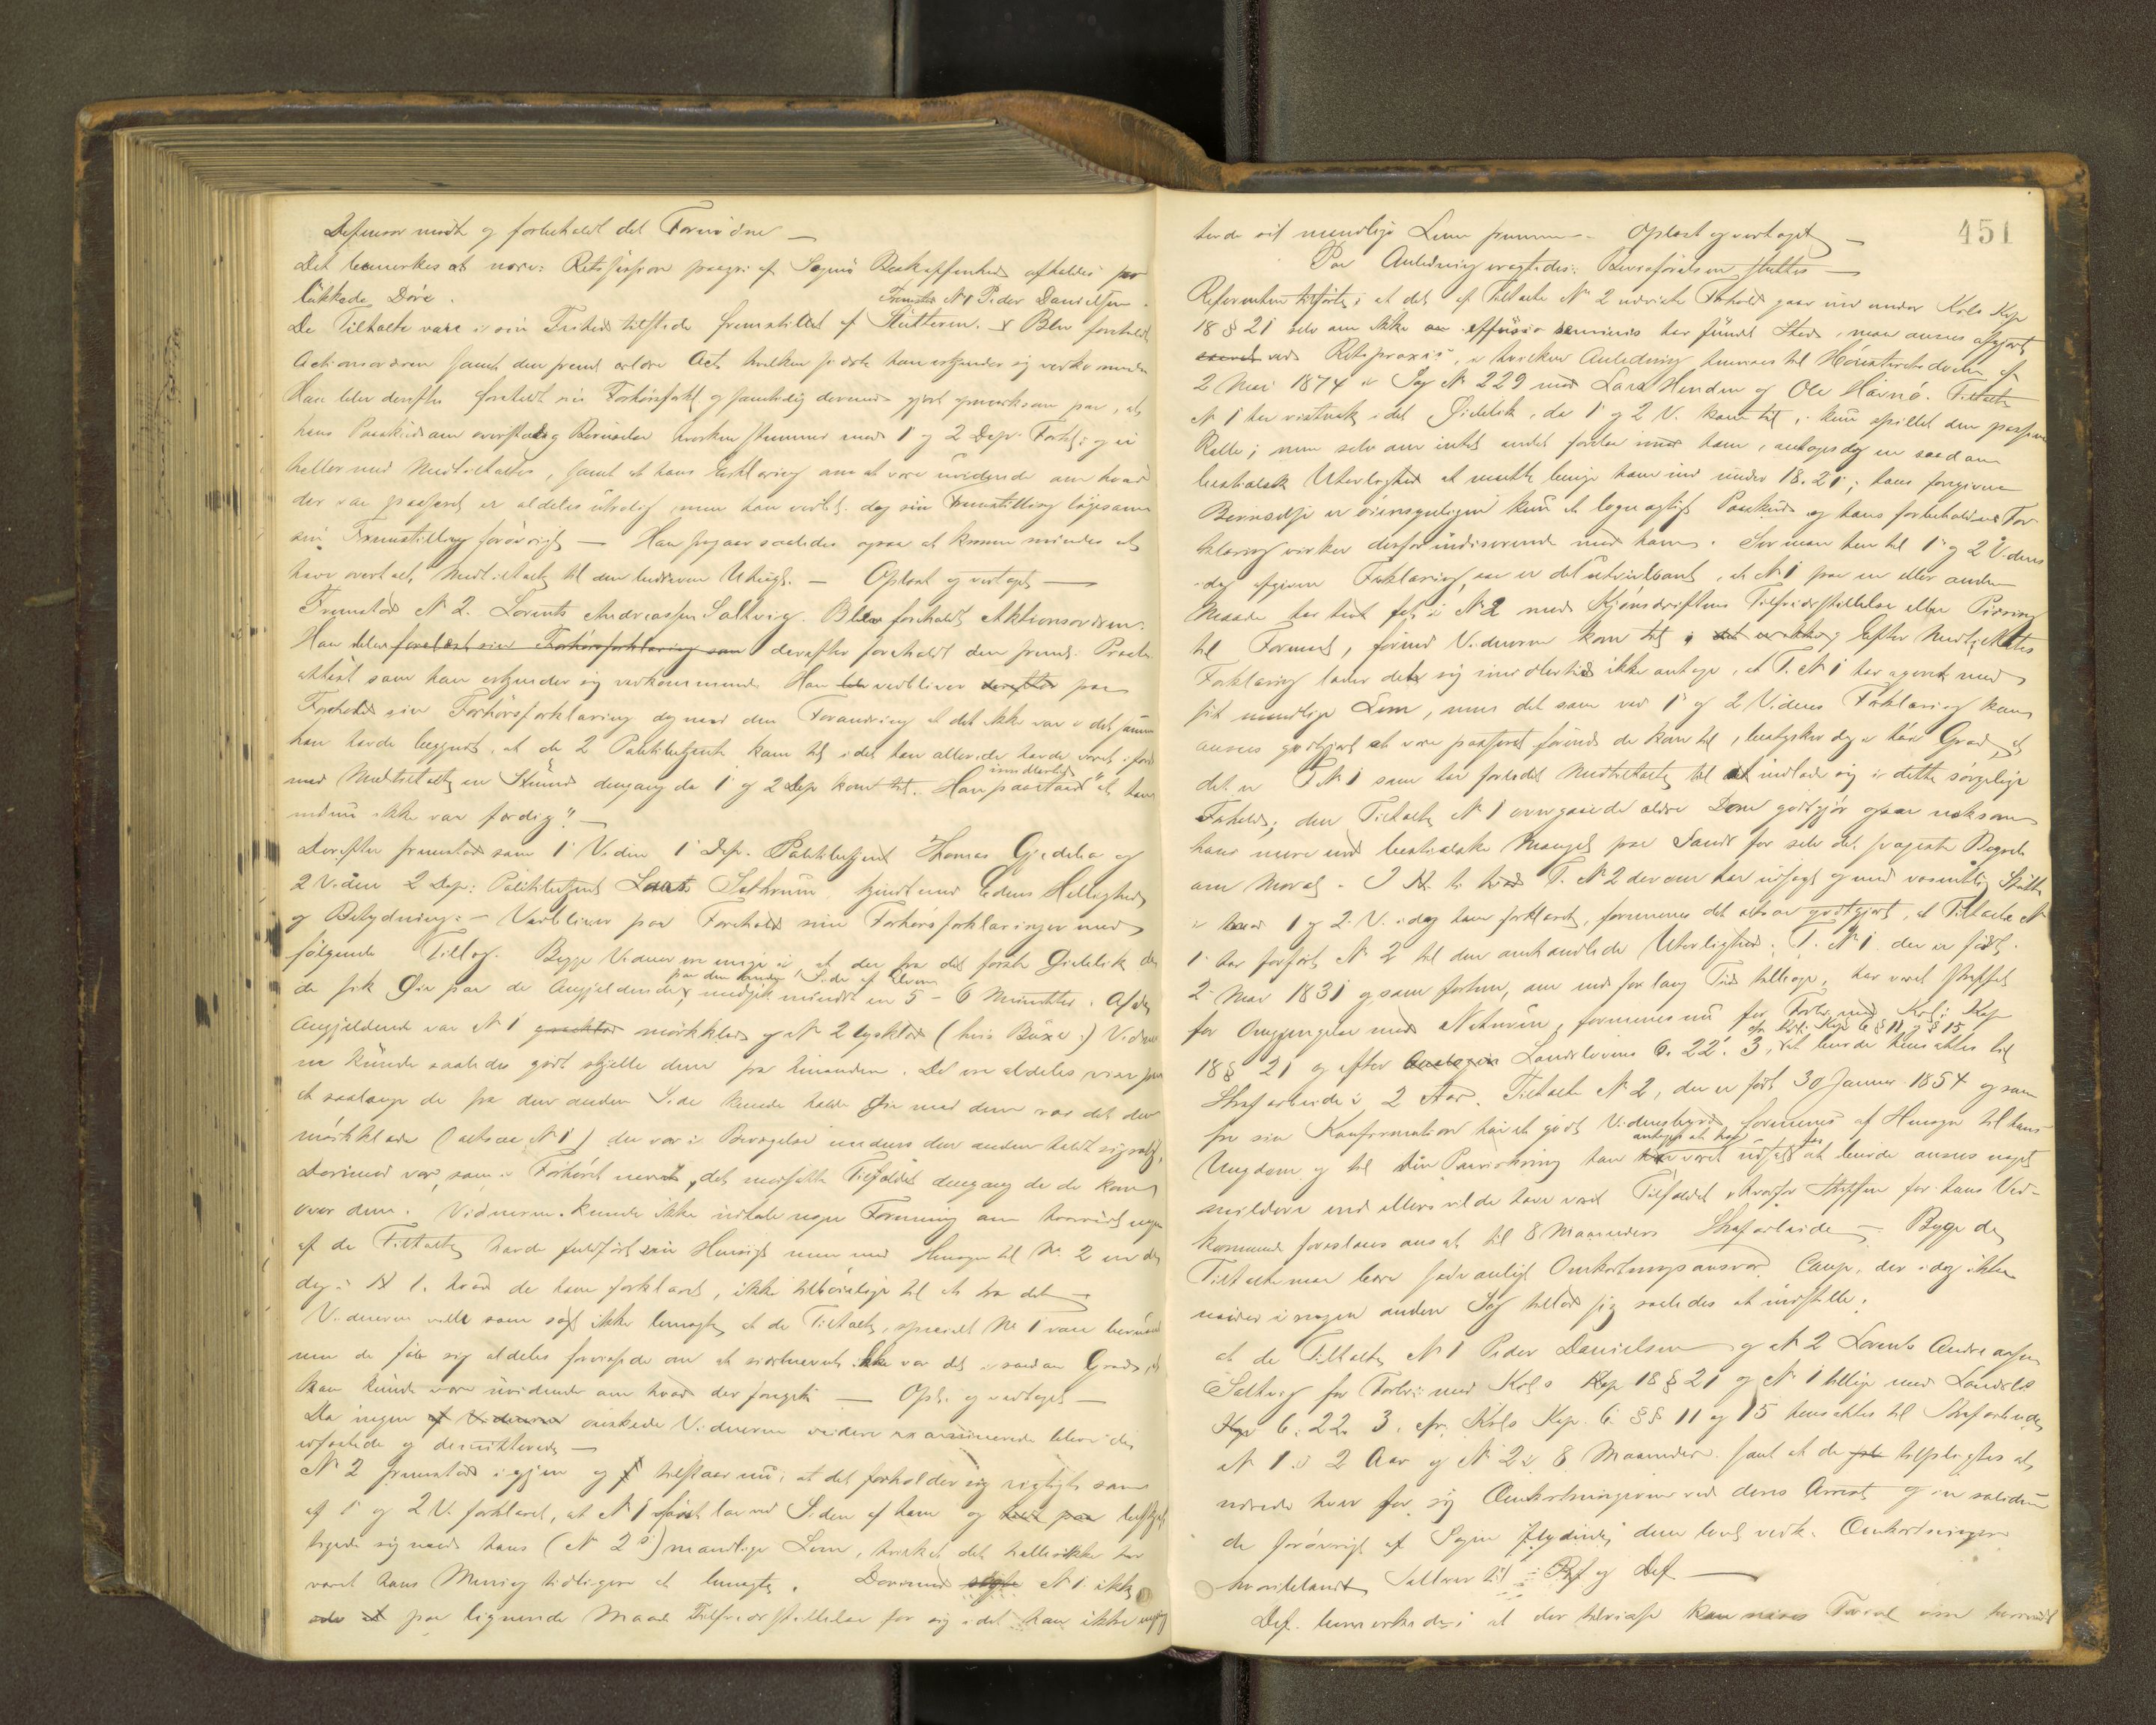 Defensor mødte og forbeholdt det Fornødne —
Det bemerkes at nærv: Retssession paagr: af Sagens Beskaffenhed afholdes for
lükkede Døre.
Fremstod N 1 Peder Danielsen.
De Tiltalte vare i sin Frihed tilstede fremstillet af Slütteren. Blev foreholdt
Actionsordren samt den fremd ældre Act hvilken sidste han erkjender sig vedkommende
Han blev derefter foreholdt sin Forhørsforkl og samtidig dermed gjort opmerksom paa, at
hans Paaskud om overstadig Beruselse hverken stemmer med 1 og 2 Dep. Forkl: og ei
heller med Medtiltaltes, samt at hans Erklæring om at være uvidende om hvad
der var passeret er aldeles utrolig men han vedbl. dog sin Fremstilling
sin Fremstilling forøvrigt — Han saaledes ogsaa at kunne mindes at
have overtalt Medtiltalte til den bedrevne Utugt. — Oplæst og vedtaget —
Fremstod N 2. Lorents Andreassen Saltvig. Blev foreholdt Aktionsordren.
Han blev forelæst sin Forhørsforklaring som derefter foreholdt den fremd. Præste-
attest som han erkjender sig vedkommende Han blev vedbliver derefter paa
Forehold sin Forhørsforklaring dog med den Forandring at det ikke var i det samme
han havde begyndt, at de 2 Politibetjente kom til idet han allerede havde været i færd
med Medtiltalte en Stund dengang da 1 og 2 Dep kom til. Han paastaar imidlertid "at han
endnu ikke var færdig". —
Derefter fremstod som 1 Vidne 1 Dep. Politibetjent Thomas Gjedebo og
2 Vidne 2 Dep: Politibetjent Laurits Sethrum, kjendt med Edens Hellighed
og Betydning: — Vedbliver paa Forehold sine Forhørsforklaringer med
følgende Tillæg. Begge Vidner ere enige i at der fra det første Øieblik da
de fik Øie paa de Angjeldende paa den anden Side af Elven medgik mindst en 5 - 6 Minutter. Af de
Angjeldende var N 1 mørkklædt og N 2 lysklædt (hvis Büxer:) Vidner-
ne kunde saaledes godt skjelle dem fra hinanden. De ere aldeles visse paa
at saalænge de fra den anden Side kunde holde Øie med dem var det den
mørkklædte (altsaa N 1) der var i Bevægelse medens den anden holdt sig rolig,
Derimod var, som i Forhøret nævnt, det modsatte Tilfældet dengang da de kom
over dem. Vidnerne kunde ikke udtale nogen Formening om hvorvidt nogen
af de Tiltalte havde fuldført sin Hensigt men med Hensyn til N. 2 er de
dog i H t. hvad de have forklaret, ikke tilbøielige til at tro det —
Vidnerne ville som sagt ikke benegte at de Tiltalte, specielt No 1 vare berusede
men de føle sig aldeles forvissede om at sidstnævnte ikke var det i saadan Grad, at
han kunde være uvidende om hvad der foregik — Opl. og vedtaget —
Da ingen af Vidnerne ønskede Vidnerne videre examinerede bleve de
afsatte og demitterede —
N 2 fremstod igjen og tilstaar nu: at det forholder sig rigtigt som
af 1 og 2 V. forklaret, at N 1 først laa ved Siden af ham og
sig med hans (N 2s) mandlige Lem, hvilket det hellerikke har
været hans Mening tidligere at benegte. Derimod N 1 ikke
paa lignende Maade Tilfredsstillelse for sig idet han ikke
havde sit mandlige Lem fremme — Oplæst og vedtaget —
451
Paa Anledning Bevisførelsen sluttes —
Referenten tilførte: at det af Tiltalte N 2 udviste Forhold gaar ind under Krls Kap
18 § 21 selv om ikke effusio seminis har fundet Sted, maa ansees afgjort
ved Retspraxis, i hvilken Anledning henvises til Høiesteretsdom af
2 Mai 1874 i Sag N 229 mod Lars Henden og Ole Havnø. Tiltalte
N 1 har vistnok i det Øieblik, da 1 og 2 V. kom til, kun spillet den passive
Rolle; men selv om intet andet forelaa imod ham, antages dog en saadan
bestialsk Uterlighed at maatte bringe ham ind under 18. 21; hans foregivne
Beruselse er øiensynligen kun et løgnagtigt Paaskud og hans forbeholdne For-
klaring virker derfor indiserende mod ham. Ser man hen til 1 og 2 Vidners
idag afgivne Forklaring, saa er det utvivlsomt, at N 1 paa en eller anden
Maade har havt fat i N 2 med Kjønsdriftens Tilfredsstillelse eller Pirring
til Formaal, førend Vidnerne kom til. det er ikke; Efter Medtiltaltes
Forklaring lader det sig imidlertid ikke antage, at T. N 1 har ageret med
sit mandlige Lem, men det som ved 1 og 2 Vidners Forklaring kan
ansees godtgjort at være passeret førend de kom til, bestyrker dog i høi Grad, at
det er T N 1 som har forledet Medtiltalte til at indlade sig i dette sørgelige
Forhold; den Tiltalte N 1 overgaaede ældre Dom godtgjør ogsaa noksom
hans mere end bestialske Mangel paa Sands for selv det svageste Begreb
om Moral. I H. t. hvad T. N 2 derom har udsagt og med væsentlig Støtte
i hvad 1 og 2. V. idag have forklaret, formenes det altsaa godtgjort, at Tiltalte N
1 har forført N 2 til den omhandlede Uterlighed. T. N 1 der er født
2 Mai 1831 og som forhen, om end for lang Tid tilbage, har været straffet
for Omgjængelse mod Naturen, formenes nu for Forbr. mod Krl: Kap
18 § 21 og efter Landslovens 6. 22. 3, cfr. Krl. Kap 6 §§ 11 & 15 at burde hensættes til
Strafarbeide i 2 Aar. Tiltalte N 2, der er født 30 Januar 1854 og som
fra sin Konfirmation har et godt Vidnesbyrd formenes af Hensyn til hans
Ungdom og til den Paavirkning han antages at have været udsat for at burde ansees noget
mildere end ellers vilde have været Tilfældet, hvorfor Straffen for hans Ved-
kommende foreslaaes ansat til 8 Maaneders Strafarbeide — Begge de
Tiltalte maa bære sædvanligt Omkostningsansvar. Comp. der idag ikke
møder i nogen anden Sag tillod sig saaledes at indstille:
at de Tiltalte N 1 Peder Danielsen og N 2 Lorents Andreassen
Saltvig for Forbr: mod Krls Kap 18 § 21 og N 1 tillige mod Landslo
Kap 6. 22. 3, cfr. Krls Kap. 6 §§ 11 og 15 hensættes til Strafarbeide
N 1 i 2 Aar og N 2 i 8 Maaneder samt at de tilpligtes at
udrede hver for sig Omkostningerne ved deres Arrest og in solidum
de forøvrigt af Sagen flydende dem begge vedk. Omkostninger
hvoriblandt Sallær til Ref og Def. —
Def. bemerkede: at der